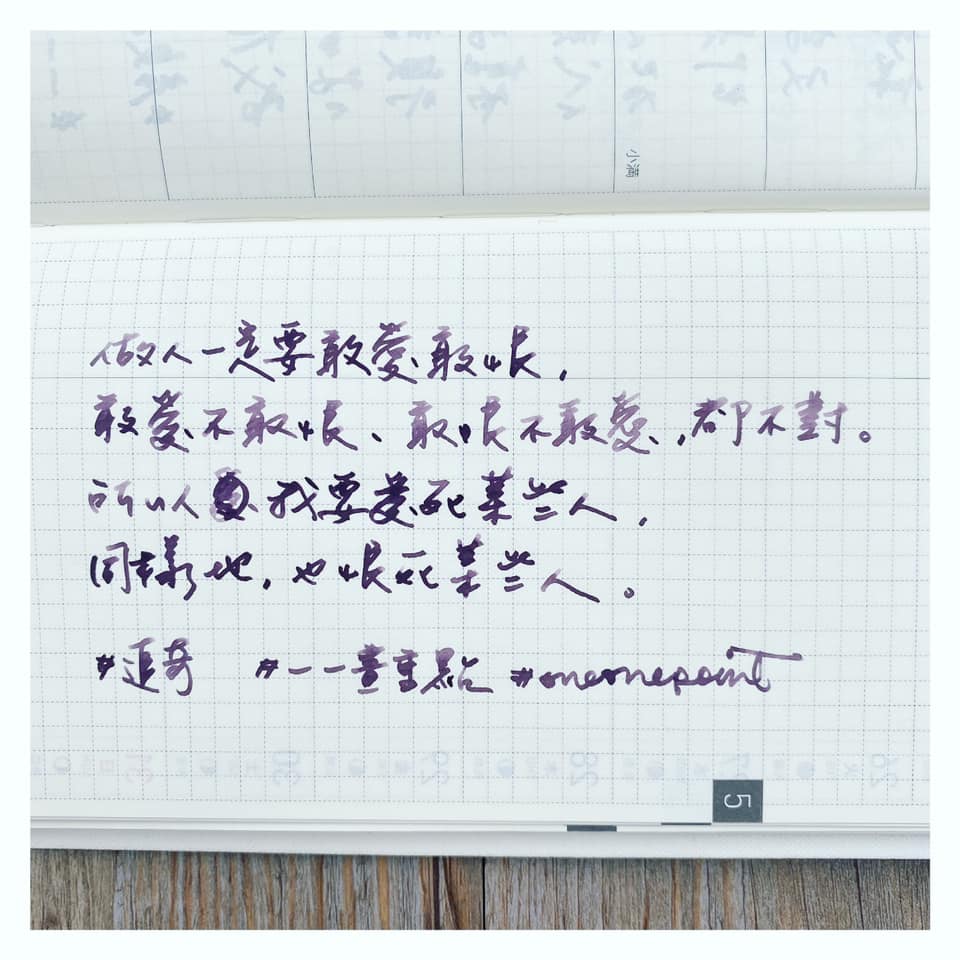 小滿
做人一定要敢愛敢恨，
敢愛不敢恨、敢恨不敢愛，都不對。
所以我要愛死某些人，
同樣地，也恨死某些人。
#追奇 #一一畫重點 #oneonepoint
5